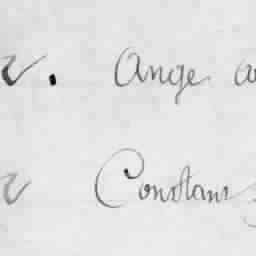 r. Ange a
r Constans